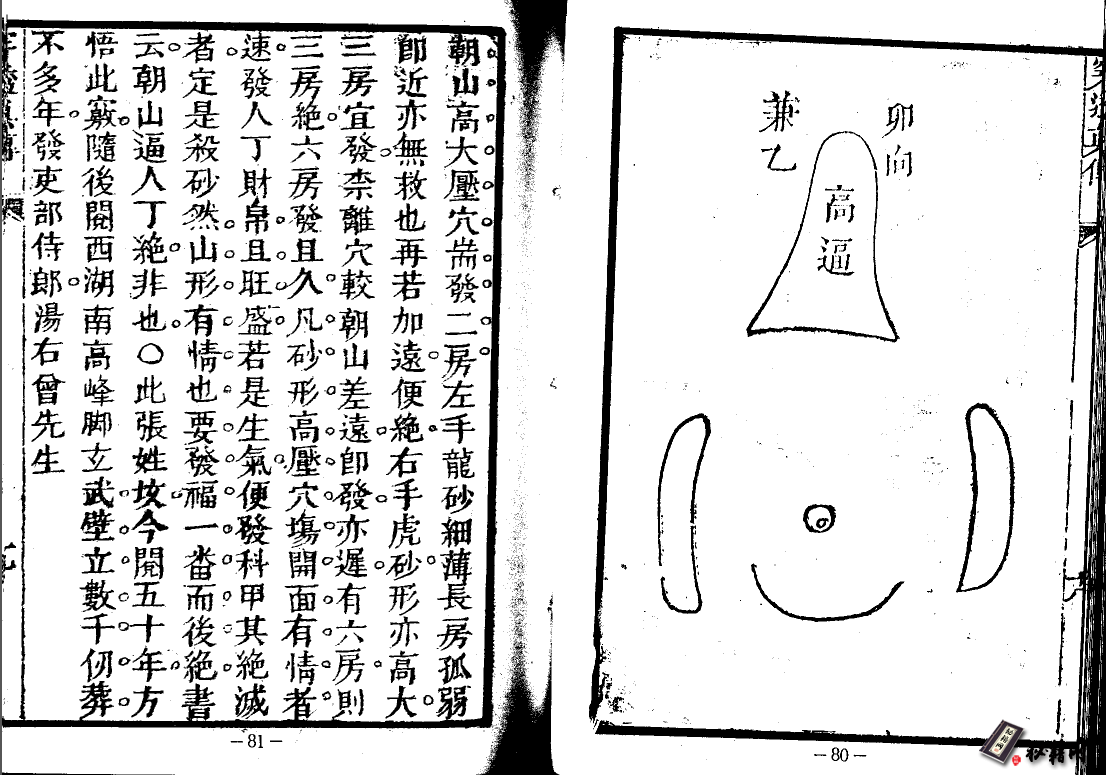 卯向
兼乙
高逼
－80－
朝山高大壓穴耑發二房左手龍砂細薄長房孤弱
即近亦無救也再若加遠便絶右手虎砂形亦高大
三房宜發柰離穴較朝山差遠即發亦遲有六房則
三房絶六房發且久凡砂形高壓穴塲開面有情者
速發人丁財帛且旺盛若是生氣便發科甲其絶滅
者定是殺砂然山形有情也要發福一畨而後絶書
云朝山逼人丁絶非也○此張姓坟今閱五十年方
悟此竅隨後閱西湖南高峰脚玄武壁立數千仞葬
不多年發吏部侍郎湯右曾先生
－81－